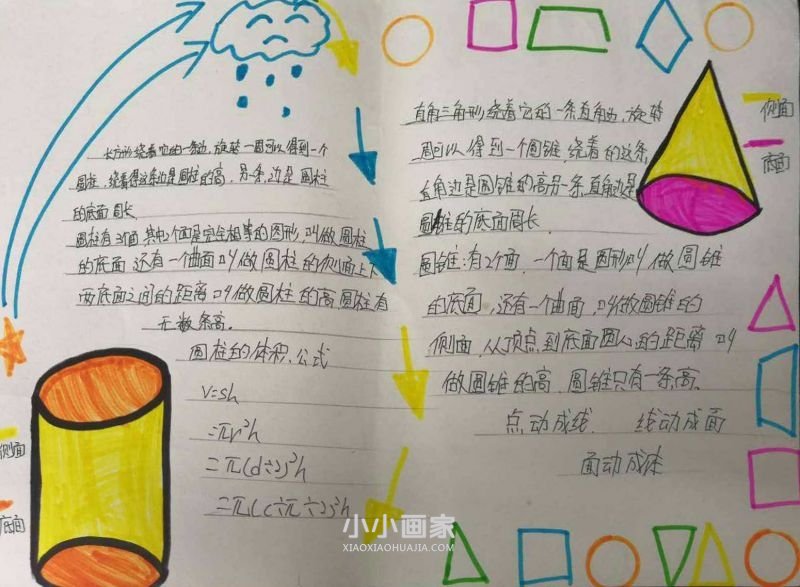 长方形绕着它的一条边,旋转一圈可以得到一个
圆柱.绕着得这条边是圆柱的高,另一条,边是圆柱
的底面周长
圆柱有3个面其中2个面是完全相等的图形,叫做圆柱
的底面还有一个曲面叫做圆柱的侧面上下
两底面之间的距离叫做圆柱的高圆柱有
无数条高.
圆柱的体积公式
V=sh
=πr²h
=π(d÷2)²h
=π(c÷π÷2)²h
侧面
底面
直角三角形绕着它的一条直角边,旋转
一周可以得到一个圆锥绕着的这条
直角边是圆锥的高另一条直角边是
圆锥的底面周长.
圆锥:有2个面.一个面是圆形叫做圆锥
的底面,还有一个曲面,叫做圆锥的
侧面,从顶点到底面圆心的距离叫
做圆锥的高.圆锥只有一条高.
点动成线. 线动成面
面动成体
侧面
底面
小小画家
XIAOXIAOHUAJIA.COM